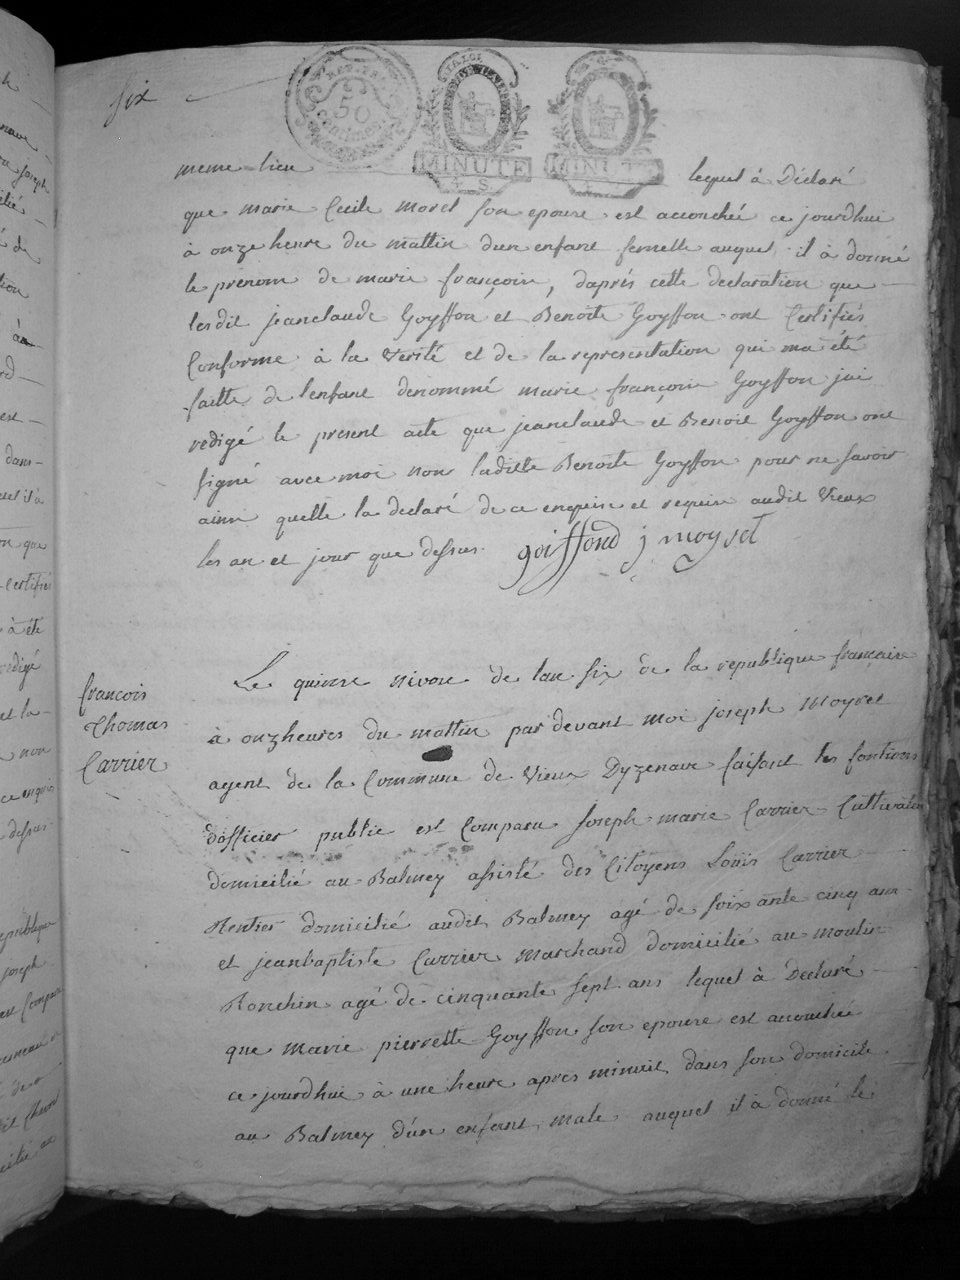 six
REP. FRA.
50
centimes
LA LOI
MINUTE
MINUTE
meme lieu lequel à Déclaré
que marie Cecile morel son epouse est accouchée ce jourdhui
à onze heure du mattin dun enfant femelle auquel il à donné
le prénom de marie françoise, daprés cette declaration que
lesdit jeanclaude Goyffon et Benoite Goyffon ont Certifiés
Conforme à la verité et de la representation qui ma été
faitte de lenfant denommé marie françoise Goyffon jai
redigé le present acte que jeanclaude et Benoit Goyffon ont
signé avec moi non laditte Benoite Goyffon pour ne savoir
ainsi quelle la declaré de ce enquise et requise audit Vieux
les an et jour que dessus goiffond j moyret
françois
Thomas
Carrier
Le quinze nivose de lan six de la republique française
à onzheures du mattin par devant moi joseph Moyret
agent de la Commune de Vieux Dyzenave faisant les fontions
dofficier public est Comparu joseph marie Carrier Cultivateur
domicilié au Balmey assisté des Citoyens Loüis Carrier
Rentier domicilié audit Balmey agé de soixante cinq ans
et jeanbaptiste Carrier Marchand domicilié au moulin
Ronchin agé de cinquante sept ans lequel à Declaré
que marie pierrette Goyffon son epouse est accouchée
ce jourdhui à une heure apres minuit dans son domicile
au Balmey d'un enfant male auquel il à donné le